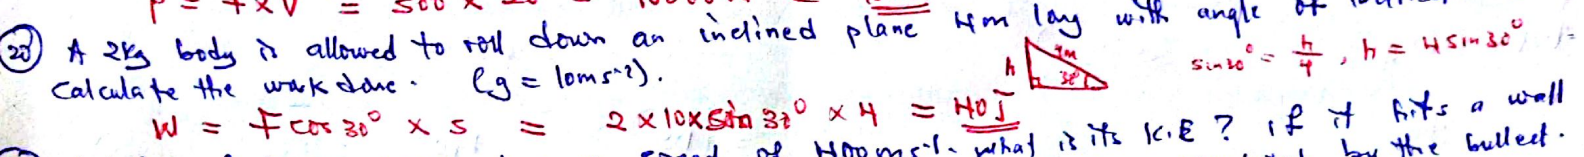 P = F x V = 500 x
(20) A 2kg body is allowed to roll down an inclined plane 4m long with angle of
Calculate the work done. (g = 10ms⁻²).
h 4m 30° sin30° = h/4, h = 4sin30°
W = Fcos30° x s = 2 x 10 x sin 30° x 4 = 40J
speed of 400ms⁻¹. what is its K.E ? if it hits a wall
by the bullet.